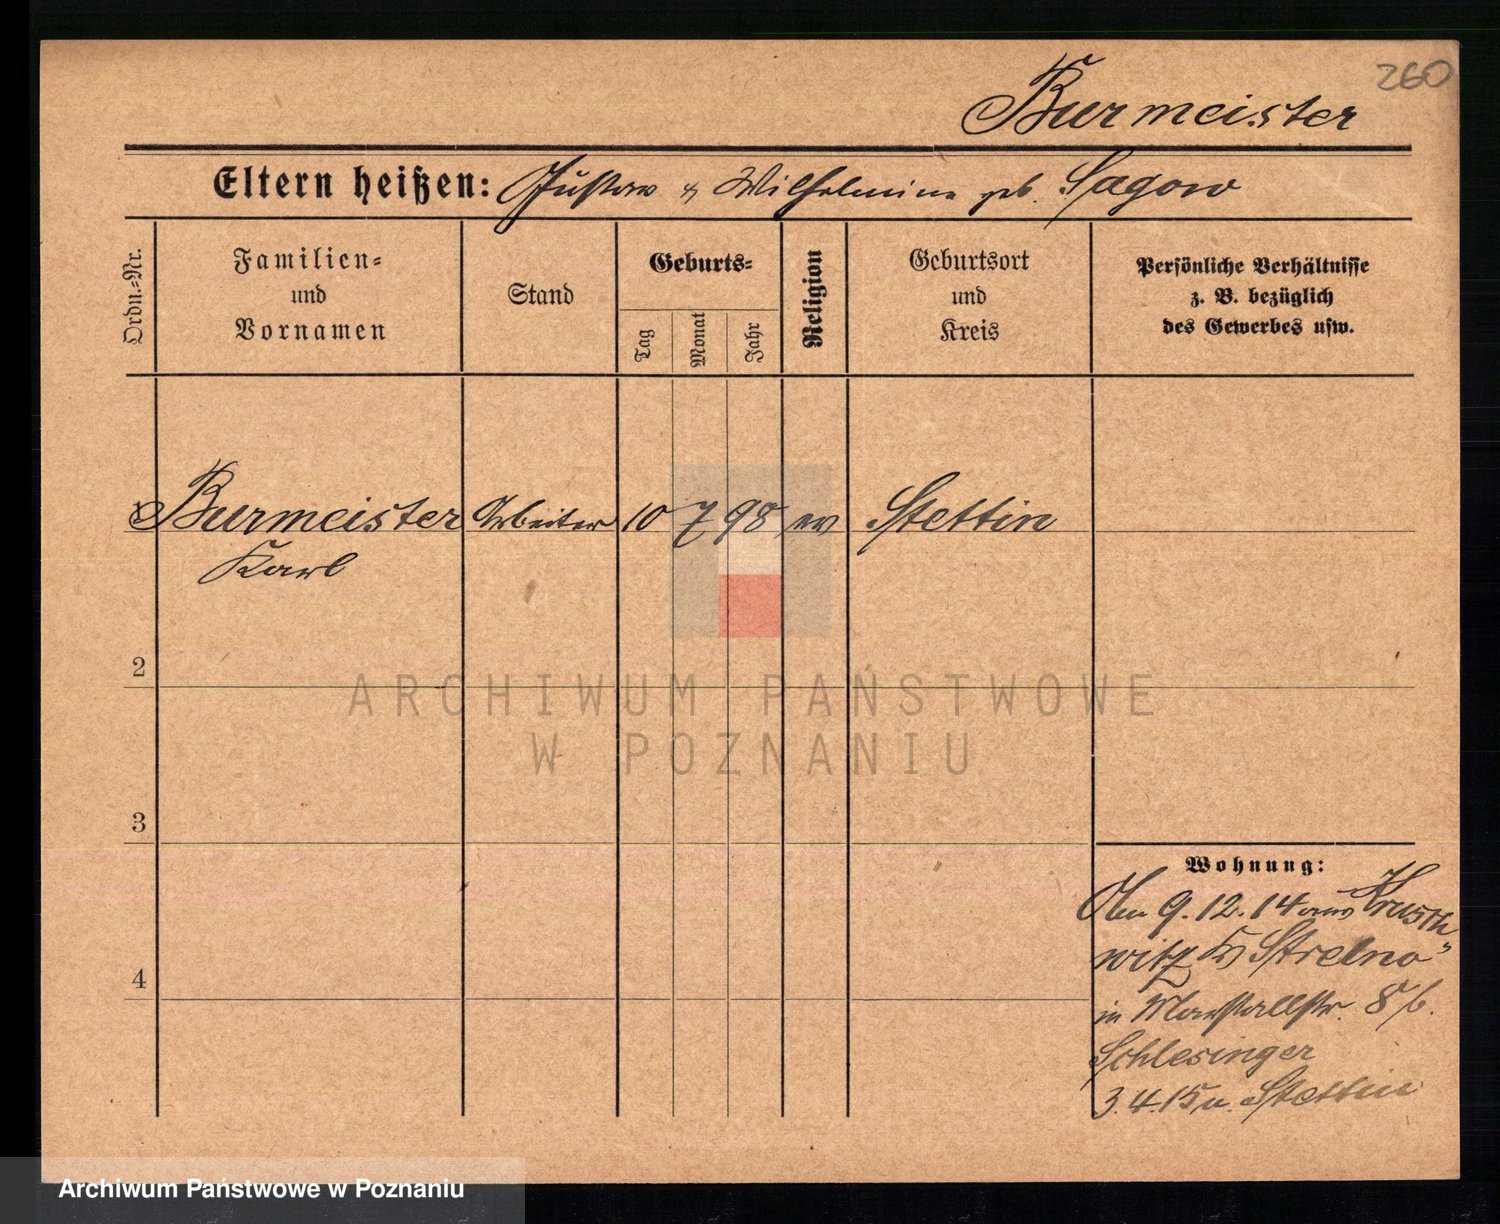 260
Burmeister
Eltern heißen: Gustav & Wilhelmine geb. Sagow
Ordn.-Nr.
Familien-
und
Vornamen
Stand
Geburts-
Tag
Monat
Jahr
Religion
Geburtsort
und
Kreis
Persönliche Verhältnisse
z. B. bezüglich
des Gewerbes usw.
1 Burmeister Arbeiter 10 7 98 ev Stettin
Karl
2
ARCHIWUM PAŃSTWOWE
W POZNANIU
3
Wohnung:
9.12.14 aus Krusch
witz Kr Strelno
in Marstallstr. 8 b.
Schlesinger
3.4.15 n. Stettin
4
Archiwum Państwowe w Poznaniu